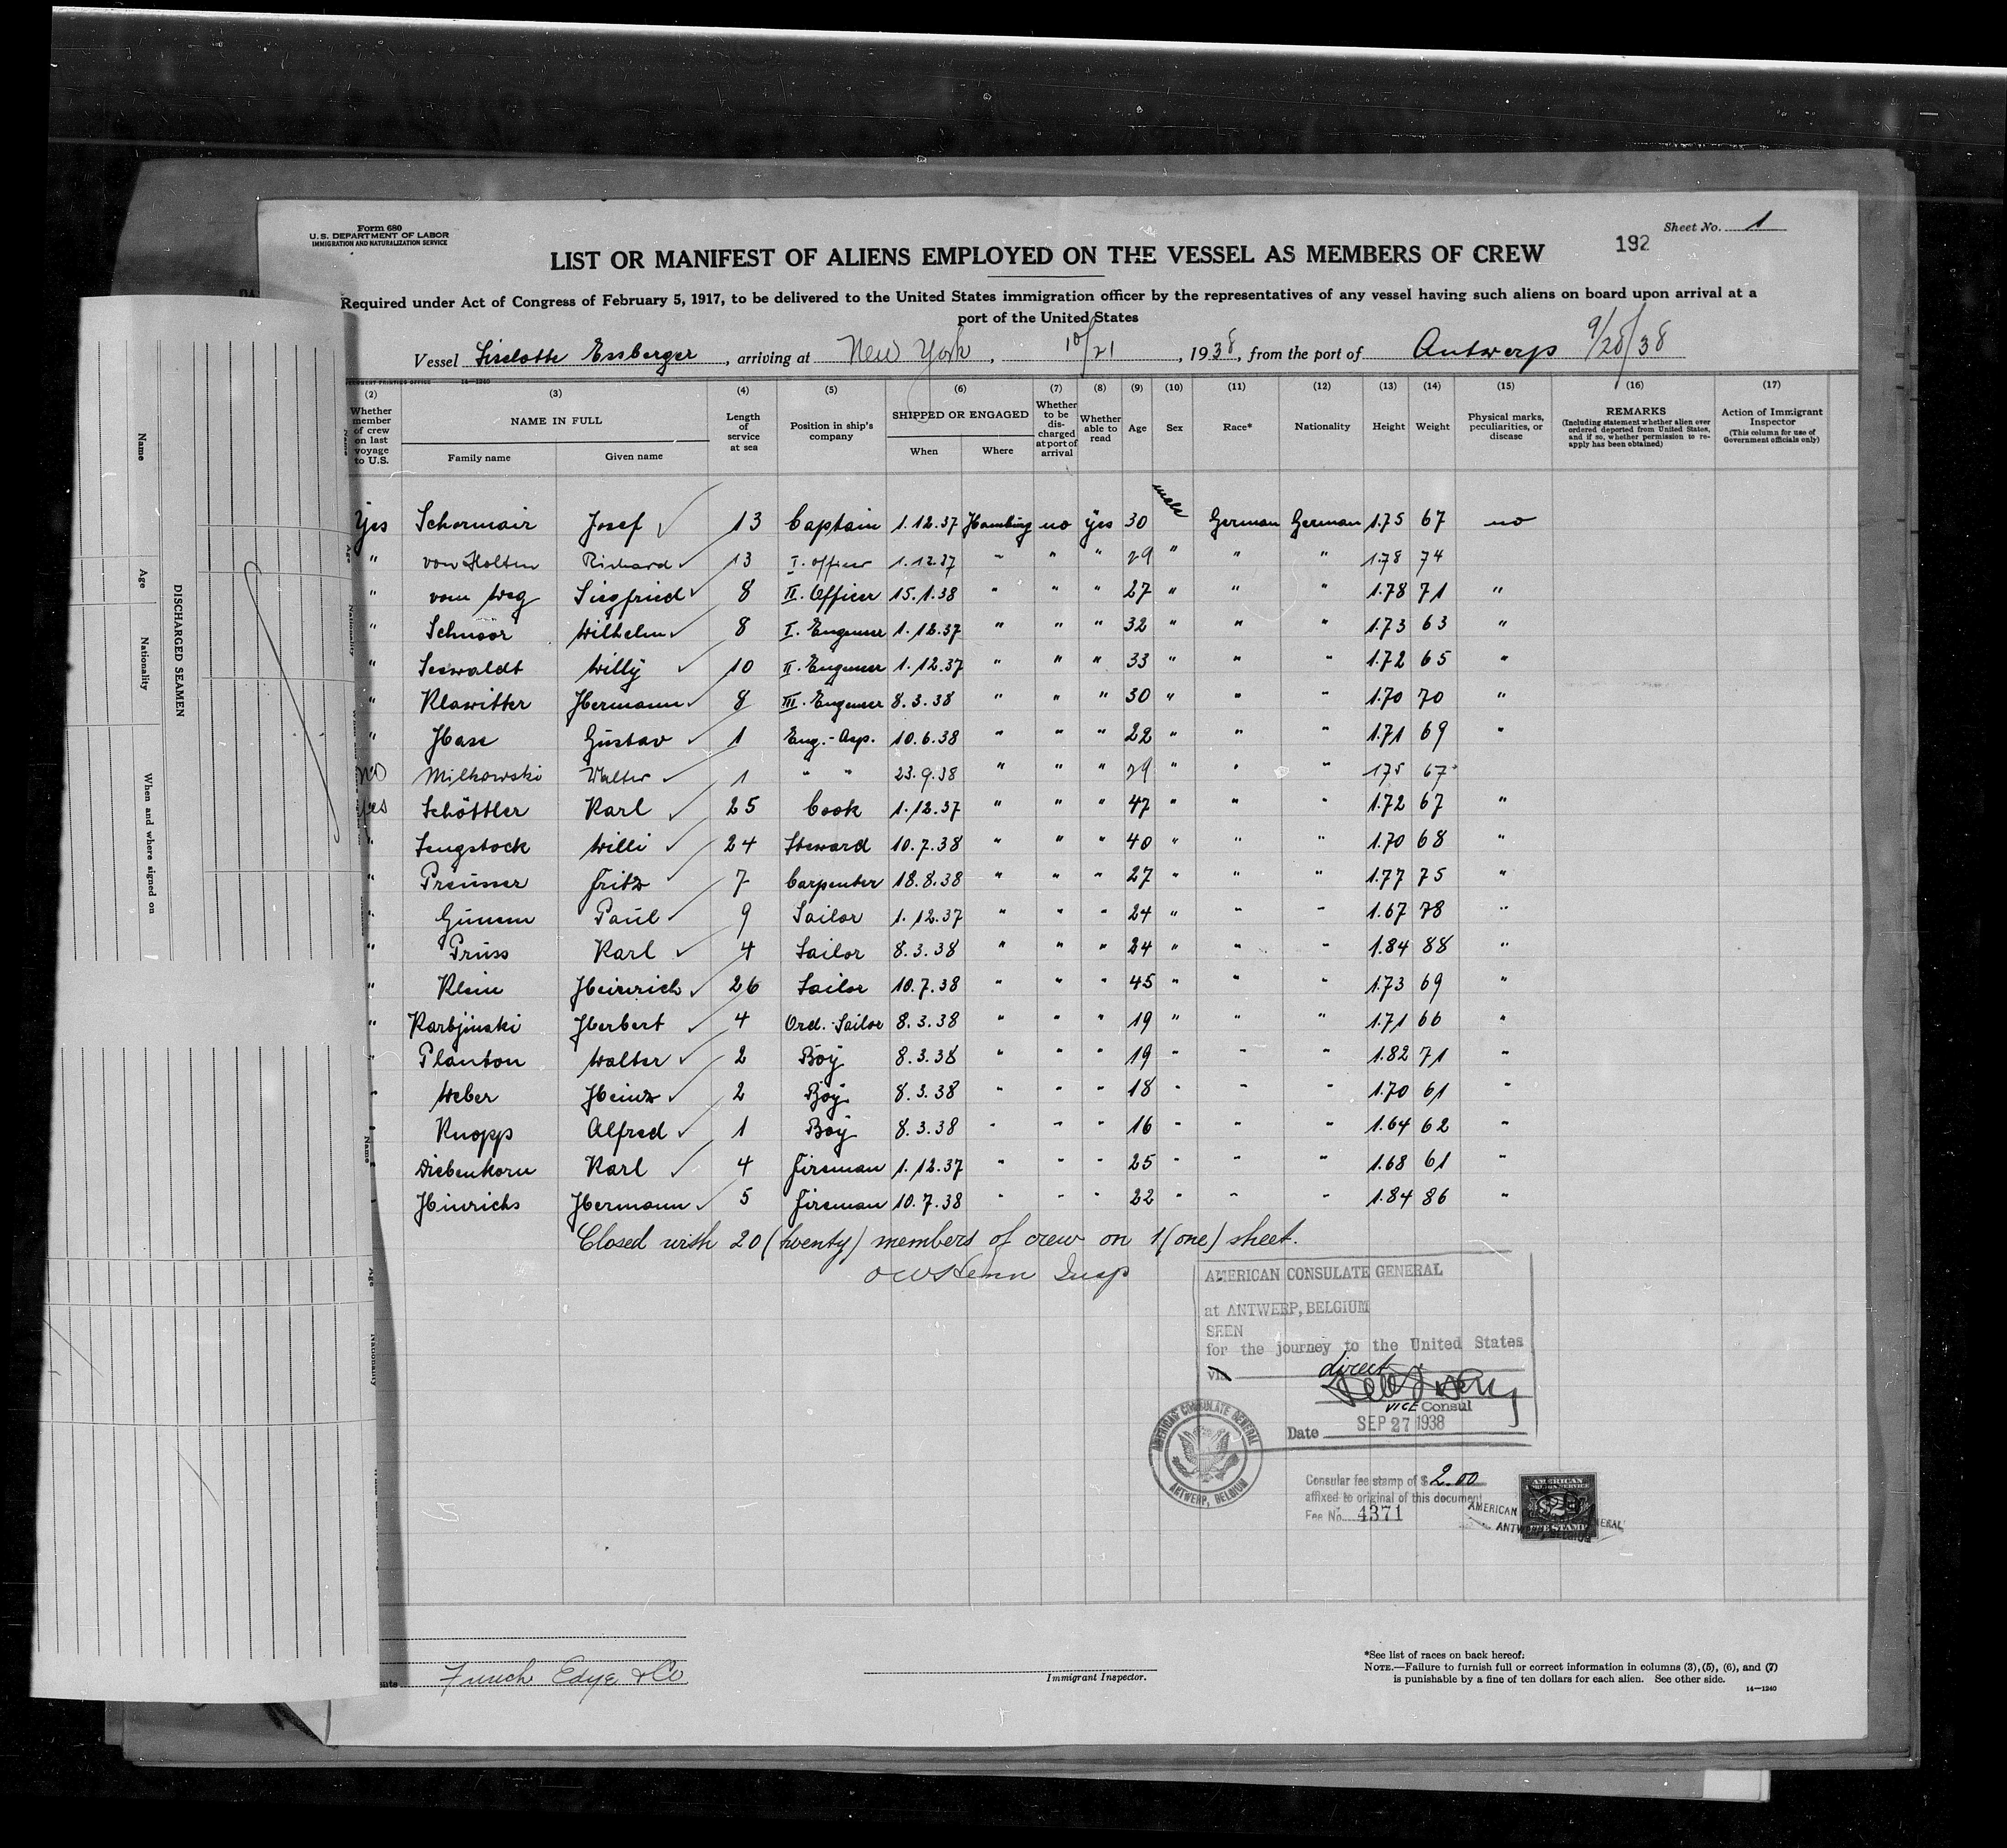 Form 680
U.S. DEPARTMENT OF LABOR
IMMIGRATION AND NATURALIZATION SERVICE
Sheet No. 1
192
LIST OR MANIFEST OF ALIENS EMPLOYED ON THE VESSEL AS MEMBERS OF CREW
Required under Act of Congress of February 5, 1917, to be delivered to the United States immigration officer by the representatives of any vessel having such aliens on board upon arrival at a
port of the United States
Vessel Liselotte Essberger, arriving at New York, 10/21, 1938, from the port of Antwerp 9/28/38
14—1240
(2) (3) (4) (5) (6) (7) (8) (9) (10) (11) (12) (13) (14) (15) (16) (17)
Whether member of crew on last voyage to U.S.
NAME IN FULL
Family name Given name
Length of service at sea
Position in ship's company
SHIPPED OR ENGAGED
When Where
Whether to be discharged at port of arrival
Whether able to read
Age Sex Race* Nationality Height Weight
Physical marks, peculiarities, or disease
REMARKS
(Including statement whether alien ever ordered deported from United States, and if so, whether permission to reapply has been obtained)
Action of Immigrant Inspector
(This column for use of Government officials only)
Yes Schormair Josef ✓ 13 Captain 1.12.37 Hamburg no yes 30 male German German 1.75 67 no
" von Holten Richard ✓ 13 I. Officer 1.12.37 " " " 29 " " " 1.78 74
" vom Weg Siegfried ✓ 8 II. Officer 15.1.38 " " " 27 " " " 1.78 71 "
" Schnoor Wilhelm ✓ 8 I. Engineer 1.12.37 " " " 32 " " " 1.73 63 "
" Seewaldt Willy ✓ 10 II. Engineer 1.12.37 " " " 33 " " " 1.72 65 "
" Klawitter Hermann ✓ 8 III. Engineer 8.3.38 " " " 30 " " " 1.70 70 "
" Hase Gustav ✓ 1 Eng.-Asp. 10.6.38 " " " 22 " " " 1.71 69 "
no Milkowski Walter ✓ 1 " " 23.9.38 " " " 29 " " " 175 67
yes Schöttler Karl ✓ 25 Cook 1.12.37 " " " 47 " " " 1.72 67 "
" Lengstock Willi ✓ 24 Steward 10.7.38 " " " 40 " " " 1.70 68 "
" Preusser Fritz ✓ 7 Carpenter 18.8.38 " " " 27 " " " 1.77 75 "
" Paul ✓ 9 Sailor 1.12.37 " " " 24 " " " 1.67 78 "
" Prüss Karl ✓ 4 Sailor 8.3.38 " " " 24 " " " 1.84 88 "
" Klein Heinrich ✓ 26 Sailor 10.7.38 " " " 45 " " " 1.73 69 "
" Karbjinski Herbert ✓ 4 Ord. Sailor 8.3.38 " " " 19 " " " 1.71 66 "
" Planton Walter ✓ 2 Boy 8.3.38 " " " 19 " " " 1.82 71 "
" Weber Heinz ✓ 2 Boy 8.3.38 " " " 18 " " " 1.70 61 "
" Knopp Alfred ✓ 1 Boy 8.3.38 " " " 16 " " " 1.64 62 "
Diebenkorn Karl ✓ 4 Fireman 1.12.37 " " " 25 " " " 1.68 61 "
Hinrichs Hermann ✓ 5 Fireman 10.7.38 " " " 22 " " " 1.84 86 "
Closed with 20 (twenty) members of crew on 1 (one) sheet.
Insp
AMERICAN CONSULATE GENERAL
at ANTWERP, BELGIUM
SEEN
for the journey to the United States
via direct
VICE Consul
Date SEP 27 1938
AMERICAN CONSULATE GENERAL
ANTWERP, BELGIUM
Consular fee stamp of $ 2.00
affixed to original of this document
Fee No. 4371
AMERICAN
FEE STAMP
Funch Edye & Co
Immigrant Inspector.
*See list of races on back hereof.
NOTE.—Failure to furnish full or correct information in columns (3), (5), (6), and (7)
is punishable by a fine of ten dollars for each alien. See other side.
14—1240
DISCHARGED SEAMEN
Name
Age
Nationality
When and where signed on